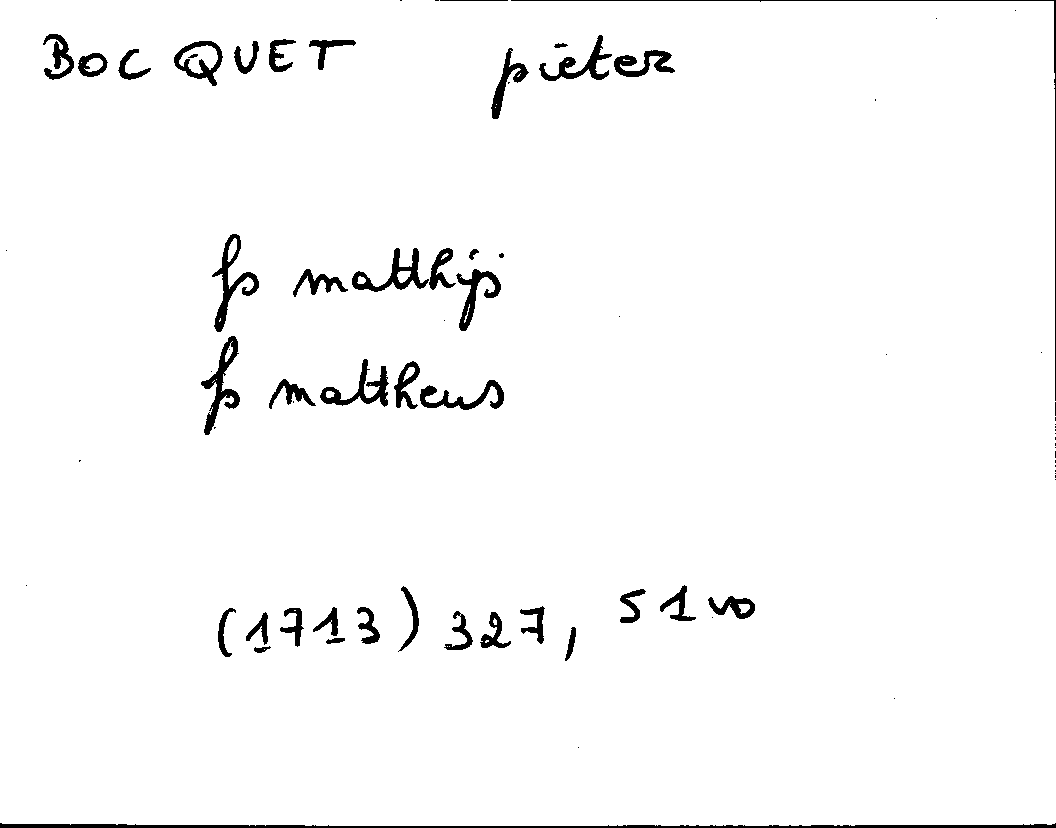 BOCQUET pieter
fs matthijs
fs mattheus
(1713) 327, 51vo